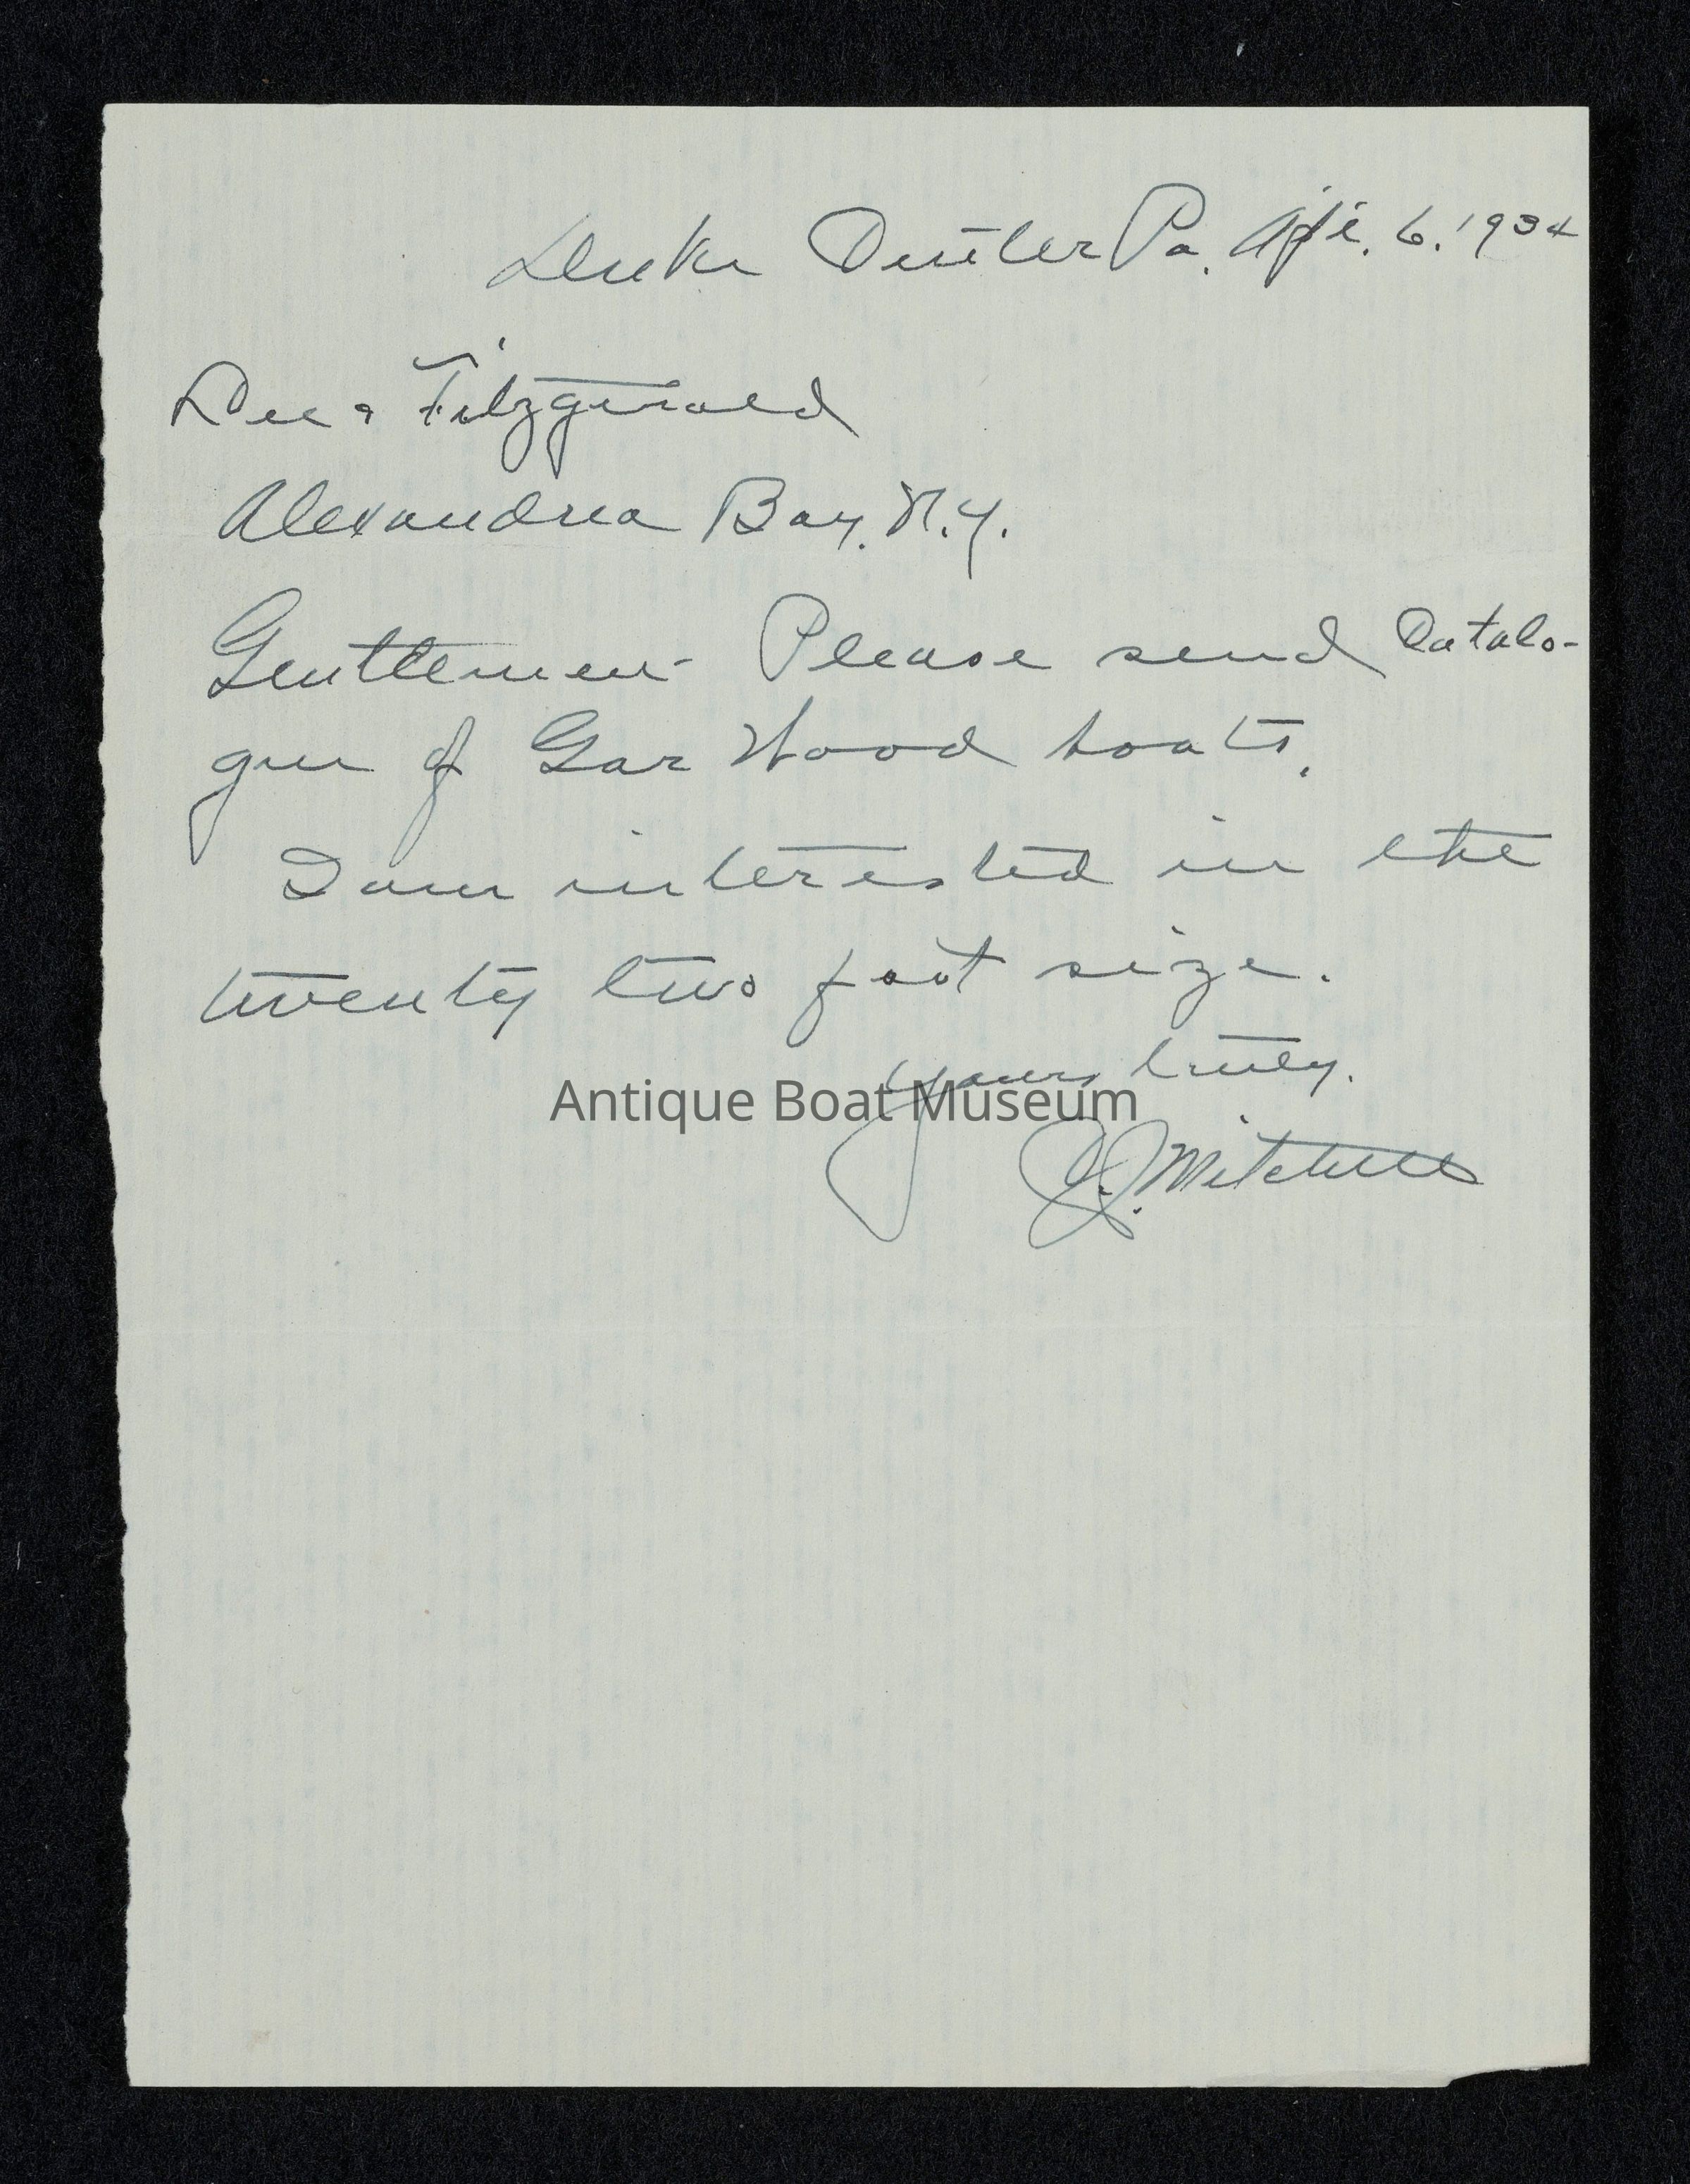 Duke Center Pa. Apr. 6. 1934
Lee & Fitzgerald
Alexandria Bay. N.Y.
Gentlemen - Please send Catalo-
gue of Gar Wood boats.
I am interested in the
twenty two foot size.
Yours truly.
Antique Boat Museum
Mitchell